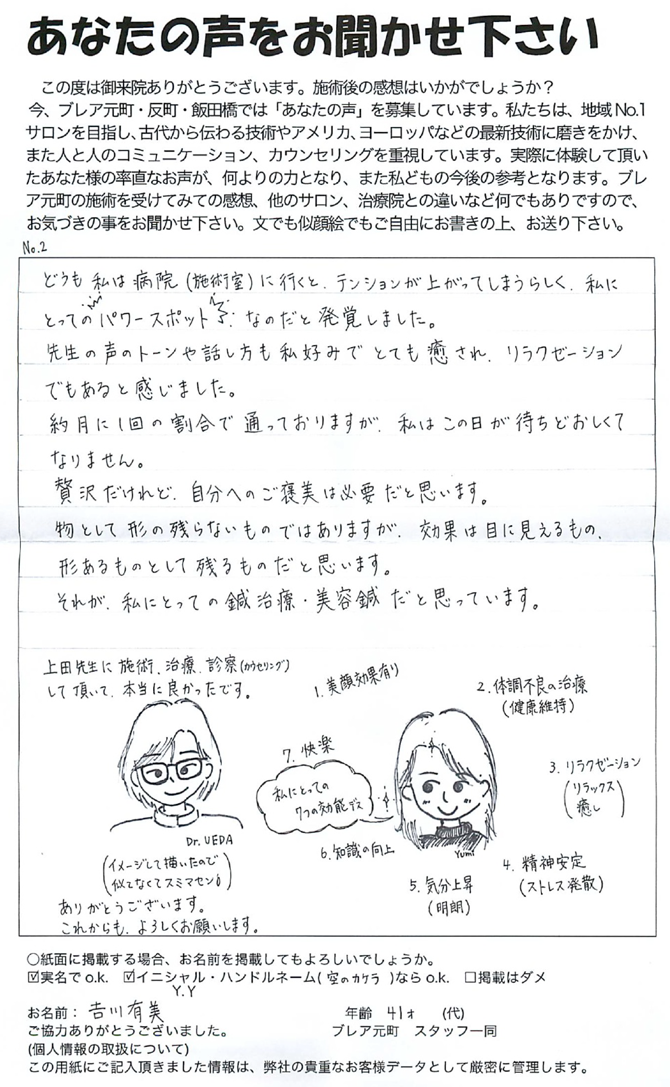 あなたの声をお聞かせ下さい
この度は御来院ありがとうございます。施術後の感想はいかがでしょうか？
今、ブレア元町・反町・飯田橋では「あなたの声」を募集しています。私たちは、地域No.1
サロンを目指し、古代から伝わる技術やアメリカ、ヨーロッパなどの最新技術に磨きをかけ、
また人と人のコミュニケーション、カウンセリングを重視しています。実際に体験して頂い
たあなた様の率直なお声が、何よりの力となり、また私どもの今後の参考となります。ブレ
ア元町の施術を受けてみての感想、他のサロン、治療院との違いなど何でもありですので、
お気づきの事をお聞かせ下さい。文でも似顔絵でもご自由にお書きの上、お送り下さい。
No.2
どうも私は病院(施術室)に行くと、テンションが上がってしまうらしく、私に
とってのパワースポット なのだと発覚しました。
先生の声のトーンや話し方も私好みでとても癒され、リラクゼーション
でもあると感じました。
約月に1回の割合で通っておりますが、私はこの日が待ちどおしくて
なりません。
贅沢だけれど、自分へのご褒美は必要だと思います。
物として形の残らないものではありますが、効果は目に見えるもの、
形あるものとして残るものだと思います。
それが、私にとっての鍼治療・美容鍼だと思っています。
上田先生に施術、治療、診察(カウセリング)
して頂いて、本当に良かったです。
1.美顔効果有り
2.体調不良の治療
(健康維持)
3.リラクゼーション
(リラックス
癒し)
4.精神安定
(ストレス発散)
5.気分上昇
(明朗)
6.知識の向上
7.快楽
私にとっての
7つの効能デス
Dr.UEDA
(イメージして描いたので
似てなくてスミマセン)
Yumi
ありがとうございます。
これからも、よろしくお願いします。
○紙面に掲載する場合、お名前を掲載してもよろしいでしょうか。
☑実名でo.k. ☑イニシャル・ハンドルネーム(空のカケラ)ならo.k. □掲載はダメ
Y.Y
お名前：吉川有美 年齢 41才 (代)
ご協力ありがとうございました。 ブレア元町 スタッフ一同
(個人情報の取扱について)
この用紙にご記入頂きました情報は、弊社の貴重なお客様データとして厳密に管理します。